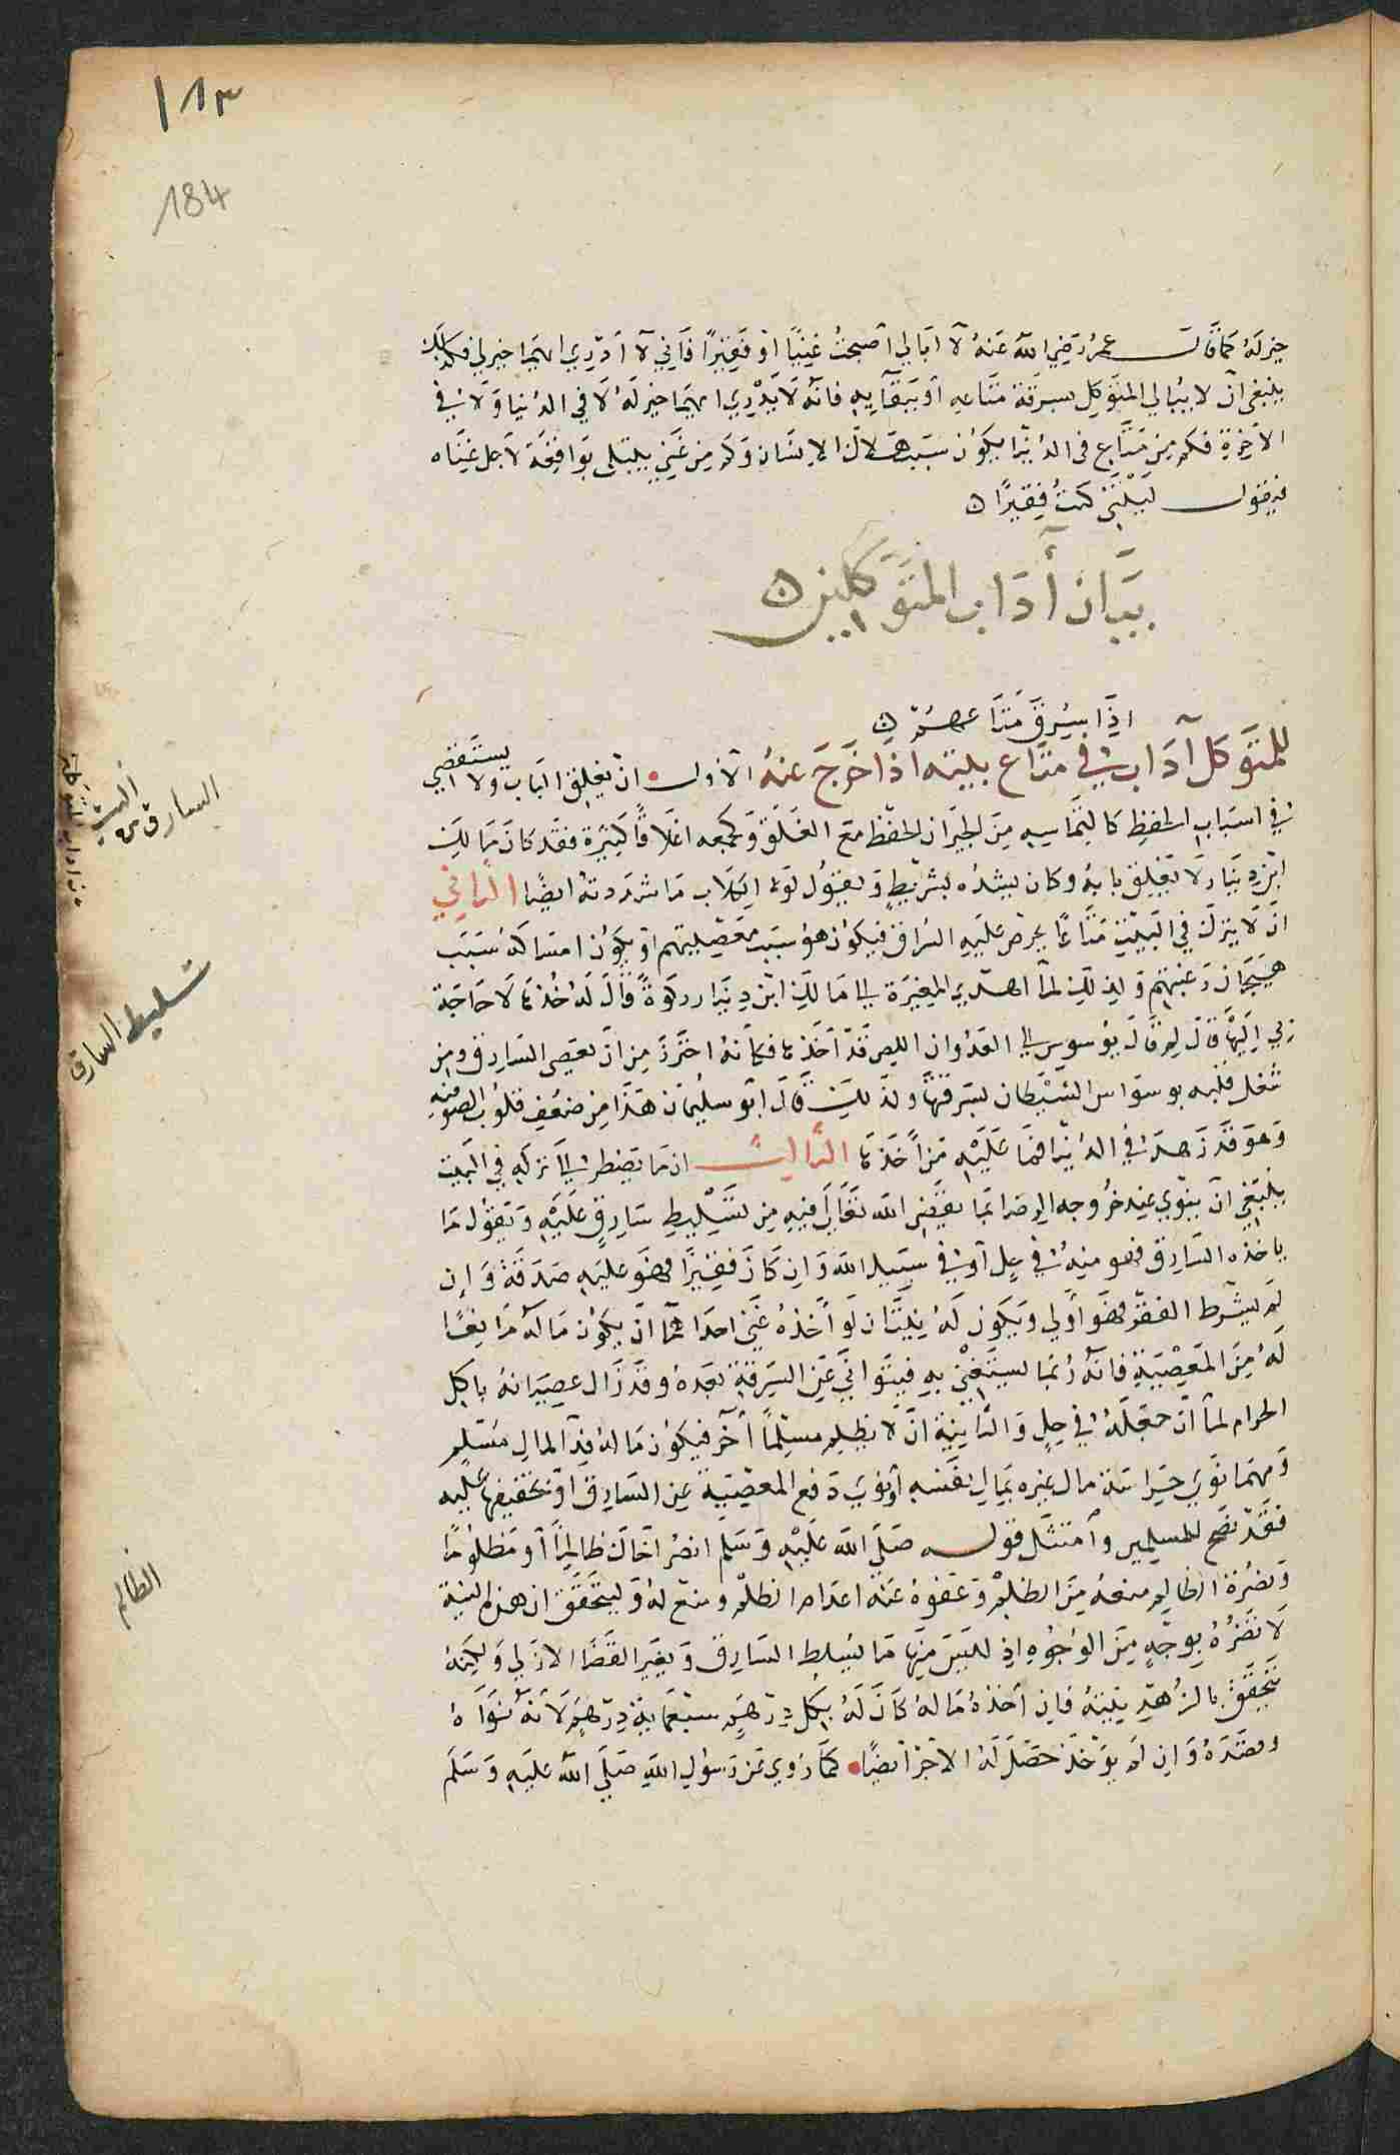 ١٨٣
184
خير له كما قال عمر رضي الله عنه لا ابالي أصبحت غنيا او فقيرا فاني لا أدري ايهما خير لي فكذلك
ينبغي أن لا يبالي المتوكل بسرقة متاعه أو ببقائه فانه لا يدري ايهما خير له لا في الدنيا ولا في
الآخرة فكم من متاع في الدنيا يكون سبب هلاك الانسان وكم من غني يبتلى بواقعة لاجل غناه
فيقول ليتني كنت فقيرا ه
بيان آداب المتوكلين ه
اذا سرق متاعهم ه
للمتوكل آداب في متاع بيته اذا خرج عنه الأول ان يغلق الباب ولا يستقصي
في اسباب الحفظ كالتماسه من الجيران الحفظ مع الغلق وكجمعه اغلاقا كثيرة فقد كان مالك
ابن دينار لا يغلق بابه وكان يشده بشريط ويقول لولا الكلاب ما شددته ايضا الثاني
ان لا يترك في البيت متاعا يحرض عليه السراق فيكون هو سبب معصيتهم او يكون امساكه سبب
هيجان رغبتهم ولذلك لما اهدى المغيرة الى مالك ابن دينار ركوة قال له خذها لا حاجة
لي اليها قال لم قال يوسوس الى العدو ان اللص قد أخذها فكأنه احترز من ان يعصى السارق ومن
شغل قلبه بوسواس الشيطان بسرقتها ولذلك قال ابو سليمان هذا من ضعف قلوب الصوفيه
وهو قد زهد في الدنيا فما عليه من أخذها الثالث ان ما يضطر الى تركه في البيت
ينبغي ان ينوي عند خروجه الرضا بما يقضي الله تعالى فيه من تسليط سارق عليه ويقول ما
ياخذه السارق فهو منه في حل أو في سبيل الله وان كان فقيرا فهو عليه صدقة وإن
لم يشرط الفقر فهو أولى ويكون له نيتان لو أخذه غني احداهما ان يكون ماله مانعا
له من المعصية فانه ربما يستغني به فيتوانى عن السرقة بعده وقد زال عصيانه باكل
الحرام لما أن جعله في حل والثانية ان لا يظلم مسلما آخر فيكون ماله فدا لمال مسلم
ومهما نوى حراسة مال غيره بمال نفسه أو نوى دفع المعصية عن السارق او تخفيفها عليه
فقد نصح للمسلمين وأمتثل قوله صلى الله عليه وسلم انصر اخاك ظالما أو مظلوما
ونصرة الظالم منعه من الظلم وعفوه عنه اعدام الظلم ومنع له وليتحقق ان هذه النية
لا تضره بوجه من الوجوه اذ ليس فيها ما يسلط السارق ويغير القضا الازلي ولكنه
يتحقق بالزهد نيته فان أخذ ماله كان له بكل درهم سبعماية درهم لانه نواه
وقصده وان لم يؤخذ حصل له الاجر ايضا كما روي عن رسول الله صلى الله عليه وسلم
السارق من البيت
تسليط السارق
الظالم